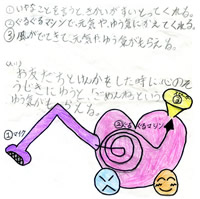 ①いやなことを言うと、きかいがすいとってくれる。
②ぐるぐるマシンで、元気や、ゆう気にかえてくれる。
③風がでてきて元気やゆう気がもらえる。
お友だちとけんかをした時に心のそ
うじきにゆうと「ごめんね」という
ゆう気がもらえる。
①マイク
②ぐるぐるマシン
③